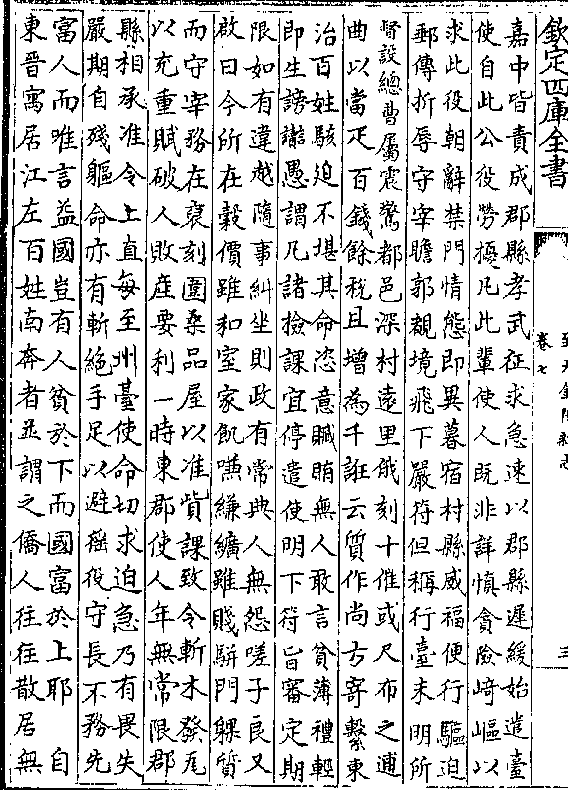 欽定四庫全書
至大金陵新志
卷七
三
嘉中皆責成郡縣孝武征求急速以郡縣遲緩始遣臺
使自此公役勞擾凡此輩使人既非詳慎貪險崎嶇以
求此役朝辭禁門情態即異暮宿村縣威福便行驅迫
郵傳折辱守宰瞻郭覲境飛下嚴符但稱行臺未明所
督設總曹屬震驚都邑深村遠里俄刻十催或尺布之逋
曲以當疋百錢餘稅且增為千誑云質作尚方寄繫東
治百姓駭迫不堪其命恣意贓賄無人敢言貧薄禮輕
即生謗讟愚謂凡諸檢課宜停遣使明下符旨審定期
限如有違越隨事糾坐則政有常典人無怨嗟子良又
啟曰今所在穀價雖和室家飢嗛縑纊雖賤駢門躶質
而守宰務在裒刻圍桑品屋以准貲課致令斬木發瓦
以充重賦破人敗產要利一時東郡使人年無常限郡
縣相承准令上直每至州臺使命切求迫急乃有畏失
嚴期自殘軀命亦有斬絶手足以避徭役守長不務先
富人而唯言益國豈有人貧於下而國富於上耶 自
東晉寓居江左百姓南奔者並謂之僑人往往散居無